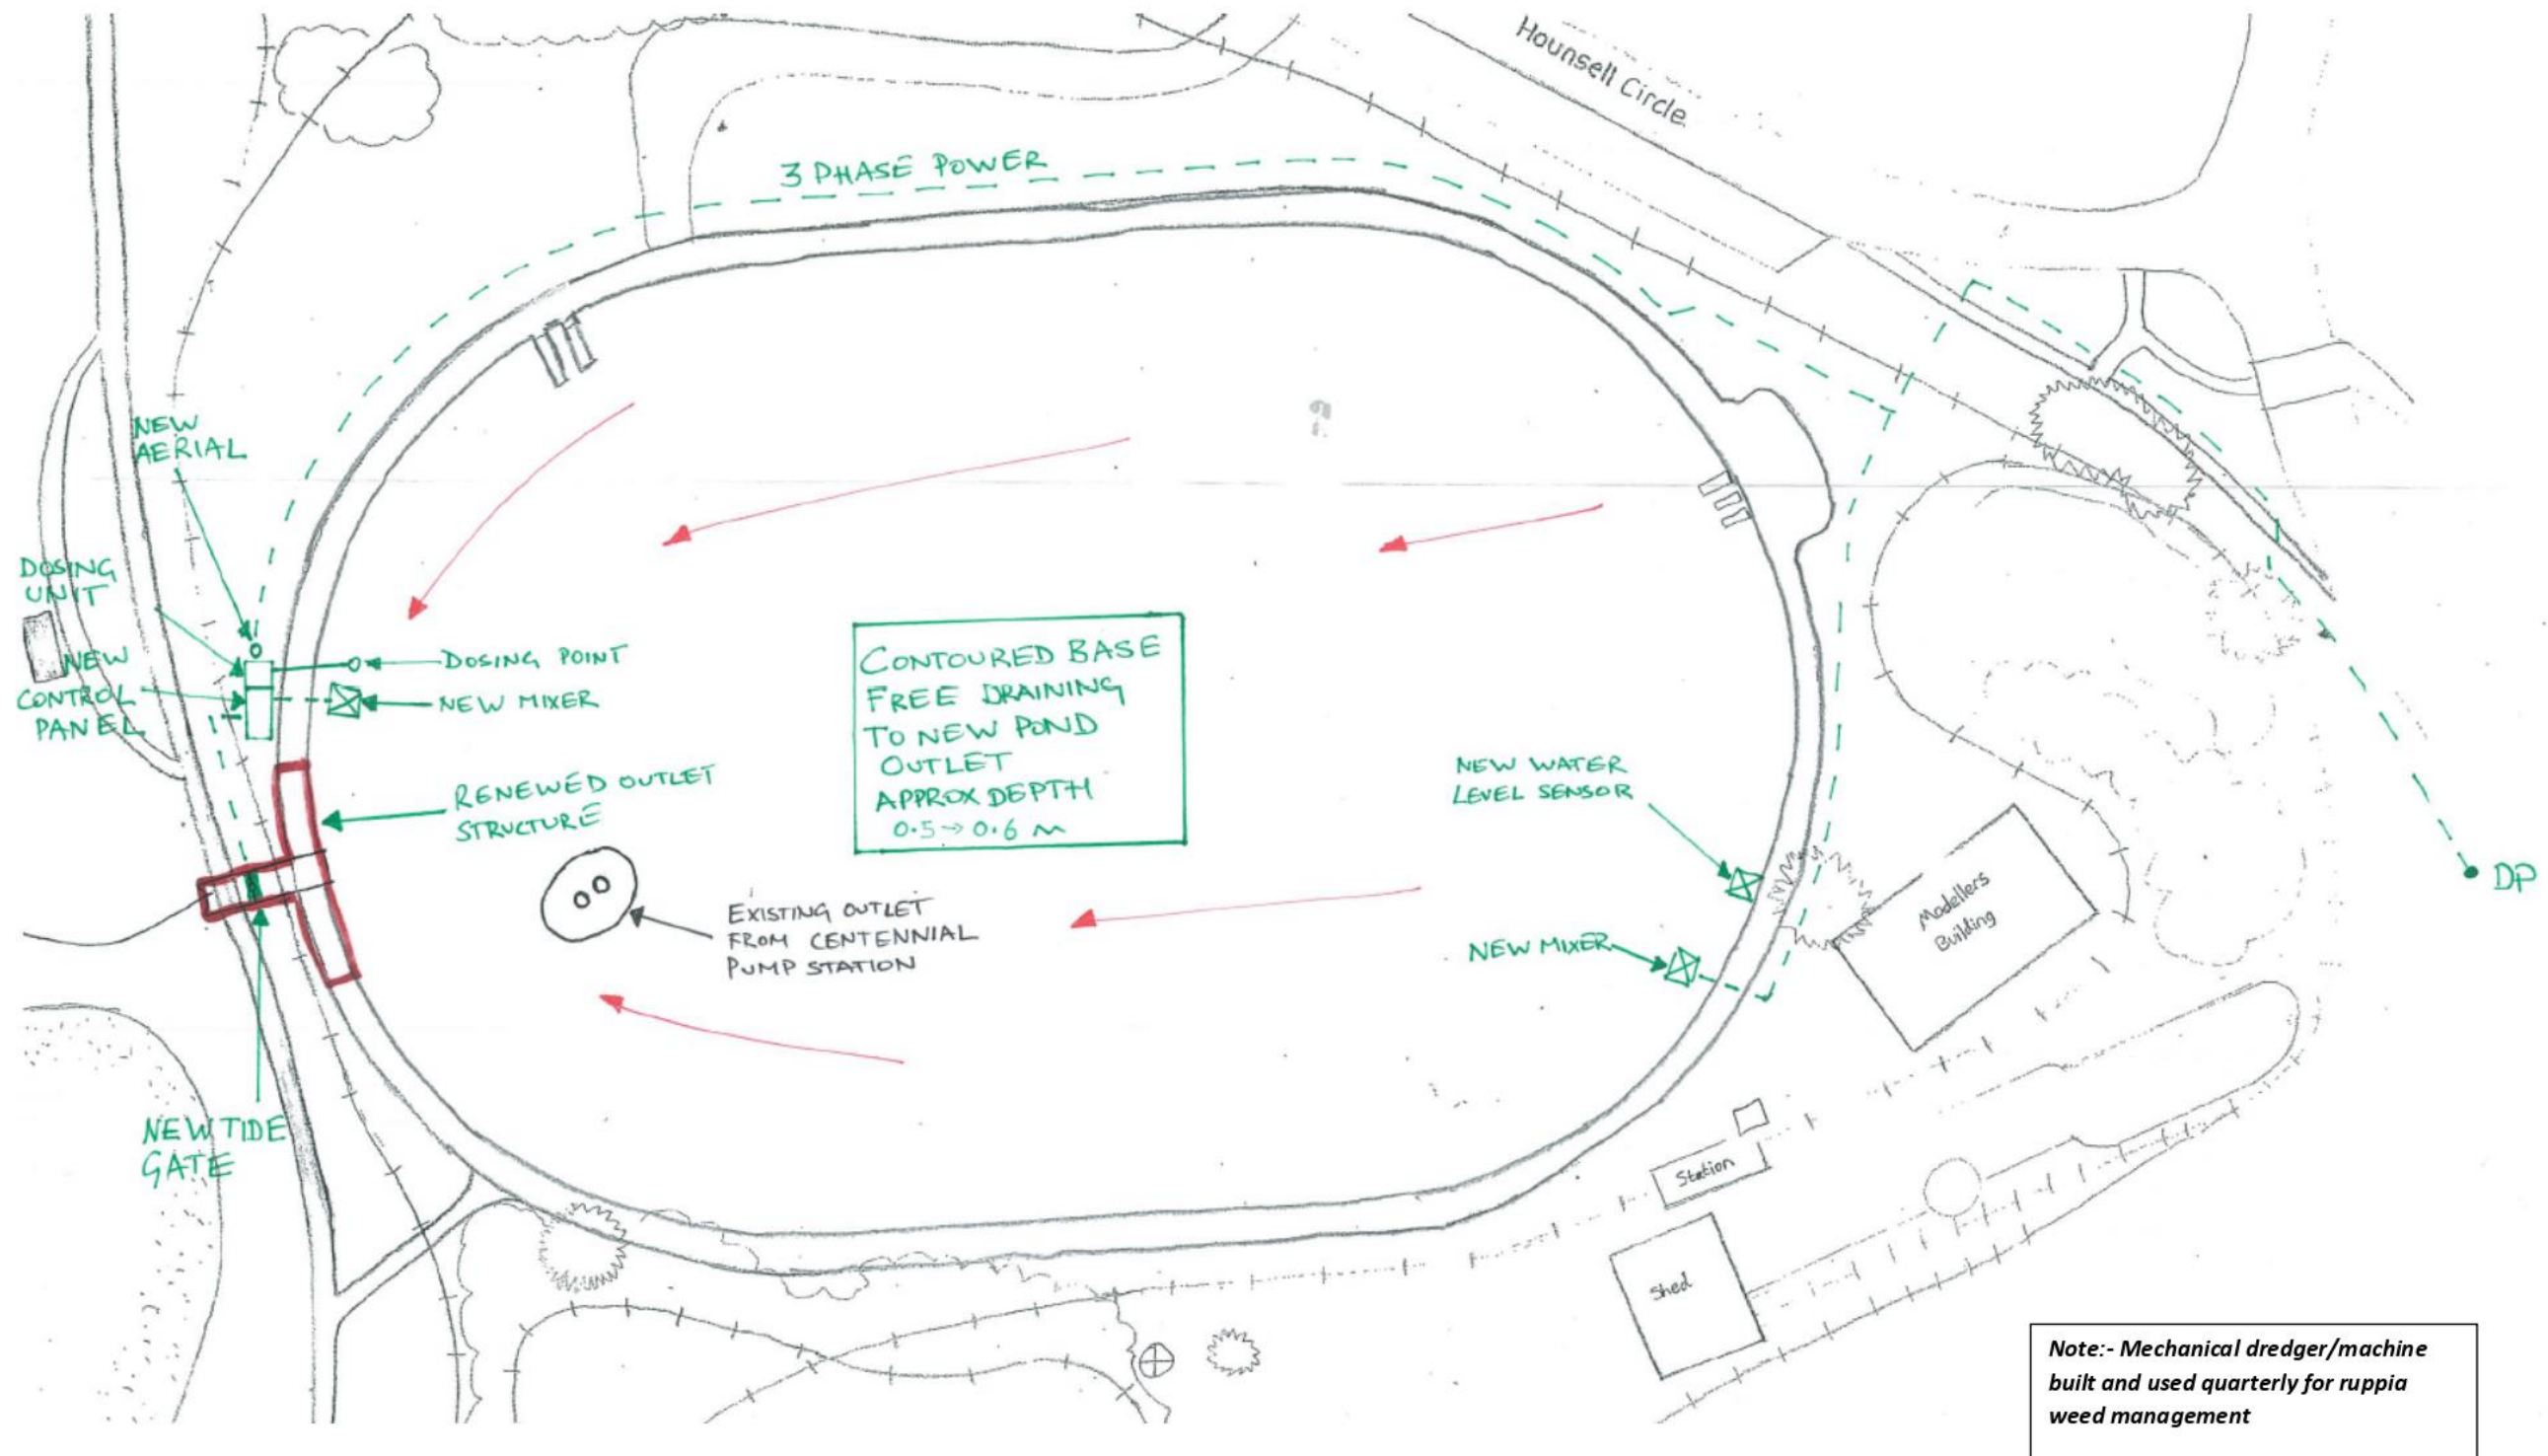 Hounsell Circle
3 PHASE POWER
NEW
AERIAL
DOSING
UNIT
NEW
CONTROL
PANEL
DOSING POINT
NEW MIXER
RENEWED OUTLET
STRUCTURE
CONTOURED BASE
FREE DRAINING
TO NEW POND
OUTLET
APPROX DEPTH
0.5→0.6 M
NEW WATER
LEVEL SENSOR
NEW MIXER
EXISTING OUTLET
FROM CENTENNIAL
PUMP STATION
Modellers
Building
DP
NEW TIDE
GATE
Station
Shed
Note:- Mechanical dredger/machine
built and used quarterly for ruppia
weed management